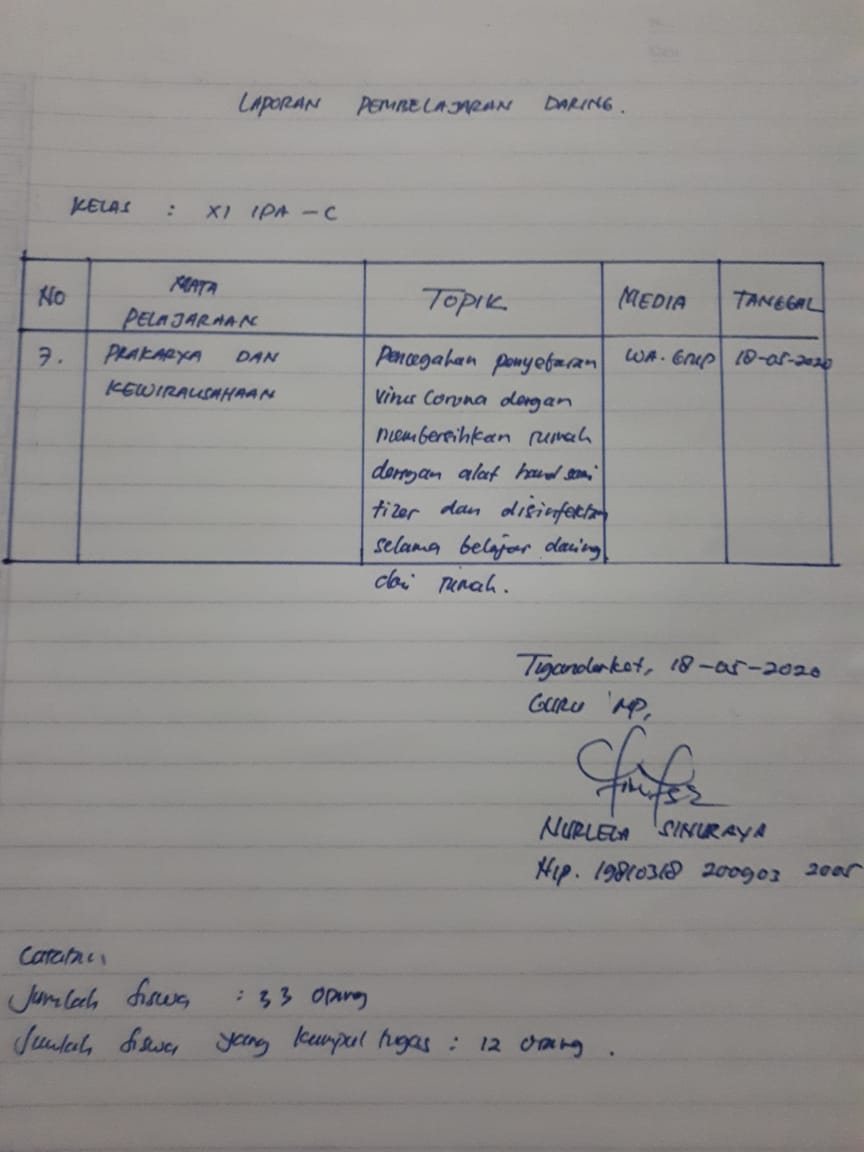 LAPORAN PEMBELAJARAN DARING.
KELAS : XI IPA - C
NO MATA PELAJARAAN TOPIK MEDIA TANGGAL
7. PRAKARYA DAN Pencegahan penyebaran WA. Grup 18-05-2020
KEWIRAUSAHAAN virus Corona dengan
membersihkan rumah
dengan alat hand sani
tizer dan disinfektan
selama belajar daring
dari rumah.
Tiganderket, 18-05-2020
GURU MP,
NURLELA SINURAYA
Nip. 19810318 200903 2005
Catatan
Jumlah siswa : 33 orang
Jumlah siswa yang kumpul tugas : 12 orang.